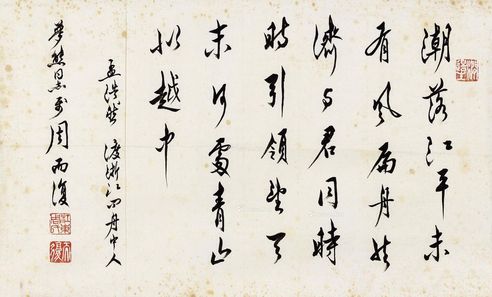 潮落江平未
有風扁舟共
濟与君同時
時引領望天
末何處青山
似越中
孟浩然 渡浙江问舟中人
夢熊 周而復